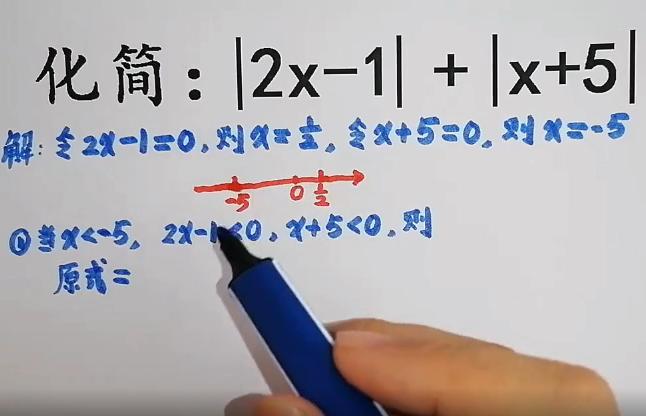 化简：|2x-1| + |x+5|
解：令2x-1=0，则x=1/2，令x+5=0，则x=-5
-5 0 1/2
①当x<-5，2x-1<0，x+5<0，则
原式=